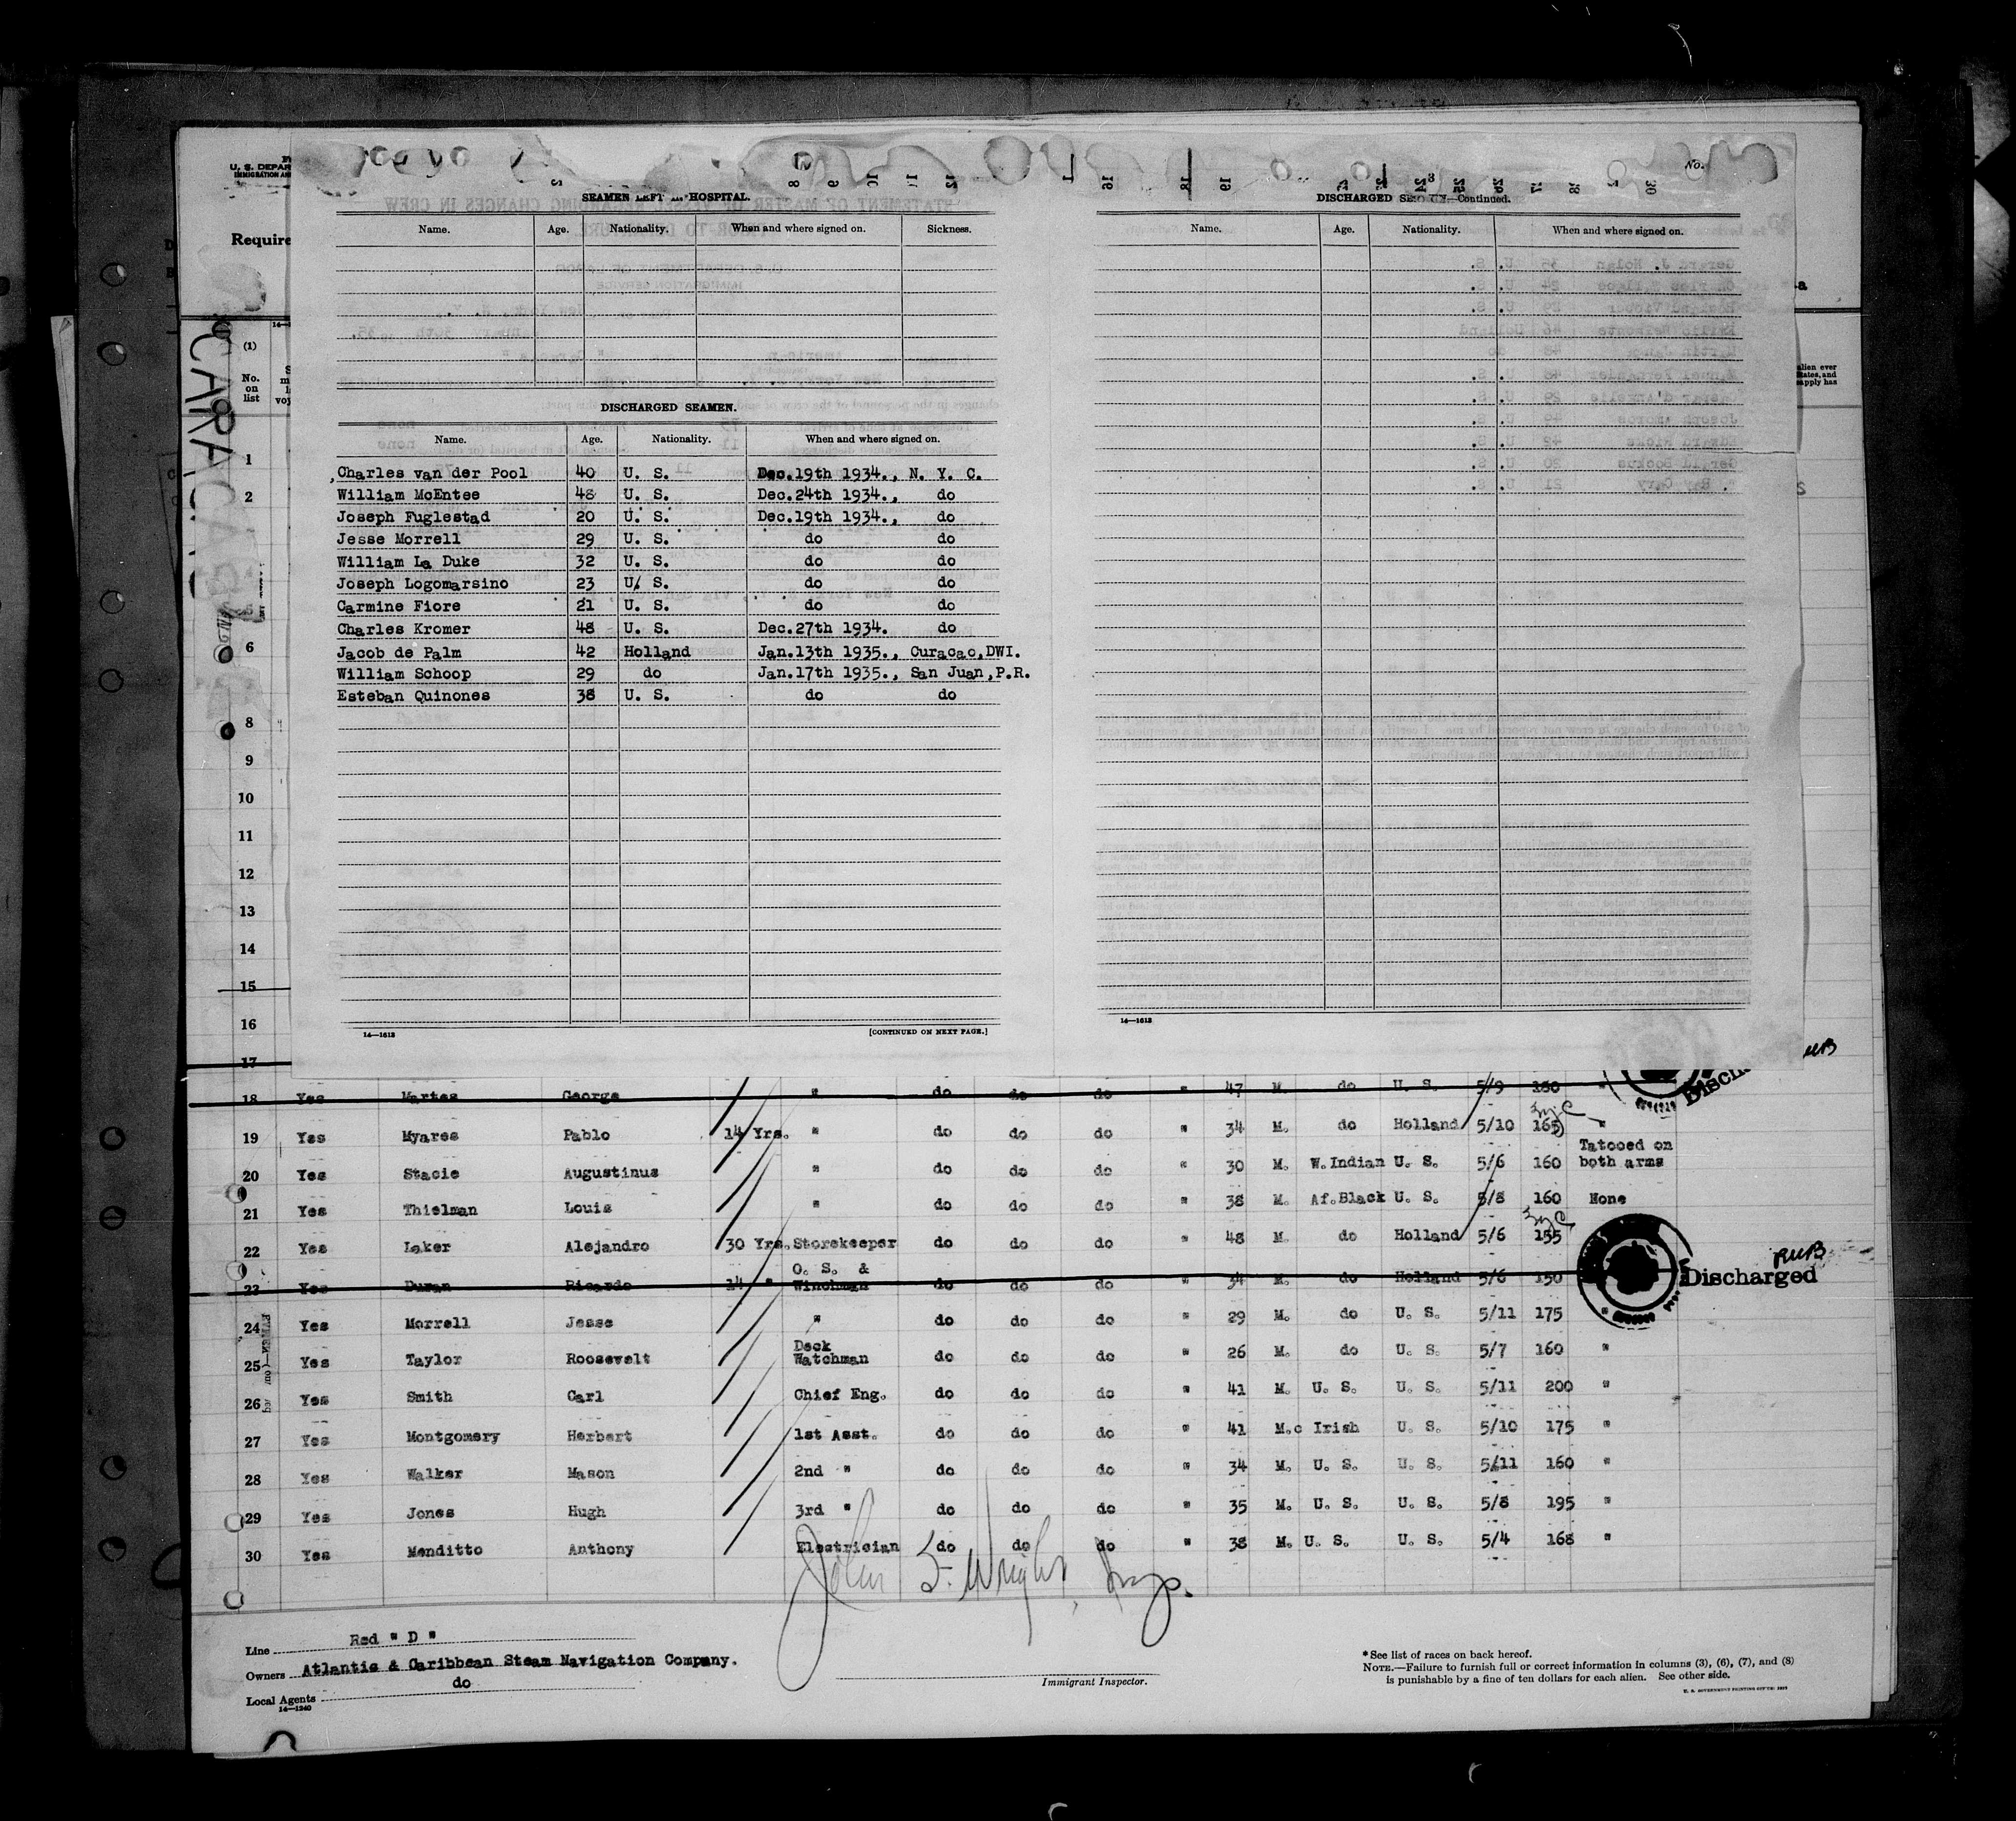 U. S. DEPAR
IMMIGRATION AN
Require
CARACAS
(1)
No.
on
list
No.
3
SEAMEN LEFT IN HOSPITAL.
Name. Age. Nationality. When and where signed on. Sickness.
DISCHARGED SEAMEN.
Name. Age. Nationality. When and where signed on.
Charles van der Pool 40 U. S. Dec.19th 1934., N. Y. C.
William McEntee 48 U. S. Dec.24th 1934., do
Joseph Fuglestad 20 U. S. Dec.19th 1934., do
Jesse Morrell 29 U. S. do do
William La Duke 32 U. S. do do
Joseph Logomarsino 23 U/ S. do do
Carmine Fiore 21 U. S. do do
Charles Kromer 48 U. S. Dec.27th 1934. do
Jacob de Palm 42 Holland Jan.13th 1935., Curacao,DWI.
William Schoop 29 do Jan.17th 1935., San Juan,P.R.
Esteban Quinones 38 U. S. do do
14—1613 [CONTINUED ON NEXT PAGE.]
DISCHARGED SEAMEN—Continued.
Name. Age. Nationality. When and where signed on.
14—1613
alien ever
States, and
apply has
1
2
6
8
9
10
11
12
13
14
15
16
17
18 Yes Martes George " do do do " 47 M. do U. S. 5/9 160 "
19 Yes Myares Pablo 14 Yrs. " do do do " 34 M. do Holland 5/10 165 "
20 Yes Stacie Augustinus " do do do " 30 M. W. Indian U. S. 5/6 160 Tatooed on both arms
21 Yes Thielman Louis " do do do " 38 M. Af. Black U. S. 5/8 160 None
22 Yes Laker Alejandro 30 Yrs. Storekeeper do do do " 48 M. do Holland 5/6 155
23 Yes Duran Ricardo 14 " O. S. & Winchman do do do " 34 M. do Holland 5/6 150 Discharged
24 Yes Morrell Jesse " do do do " 29 M. do U. S. 5/11 175
25 Yes Taylor Roosevelt Deck Watchman do do do " 26 M. do U. S. 5/7 160 "
26 Yes Smith Carl Chief Eng. do do do " 41 M. U. S. U. S. 5/11 200 "
27 Yes Montgomery Herbert 1st Asst. do do do " 41 M.c Irish U. S. 5/10 175 "
28 Yes Walker Mason 2nd " do do do " 34 M. U. S. U. S. 5/11 160 "
29 Yes Jones Hugh 3rd " do do do " 35 M. U. S. U. S. 5/8 195 "
30 Yes Menditto Anthony Electrician do do do " 38 M. U. S. U. S. 5/4 168 "
John S. Wright, Insp.
Immigrant Inspector.
Line Red " D "
Owners Atlantic & Caribbean Steam Navigation Company.
Local Agents do
14—1240
*See list of races on back hereof.
NOTE.—Failure to furnish full or correct information in columns (3), (6), (7), and (8)
is punishable by a fine of ten dollars for each alien. See other side.